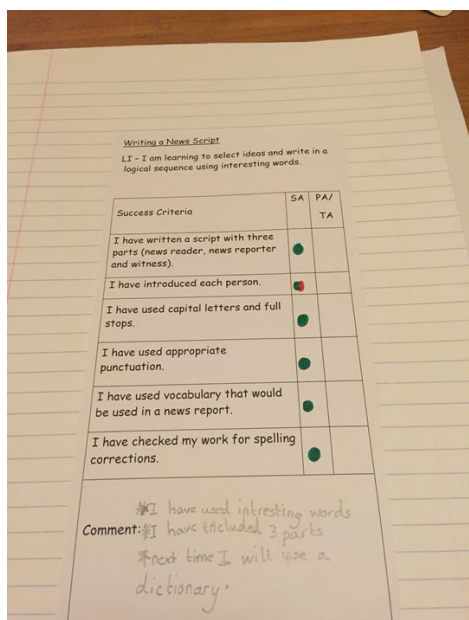 Writing a News Script
LI - I am learning to select ideas and write in a
logical sequence using interesting words.
Success Criteria
SA
PA/
TA
I have written a script with three
parts (news reader, news reporter
and witness).
I have introduced each person.
I have used capital letters and full
stops.
I have used appropriate
punctuation.
I have used vocabulary that would
be used in a news report.
I have checked my work for spelling
corrections.
Comment:
*I have used intresting words
*I have included 3 parts
*next time I will use a
dictionary.